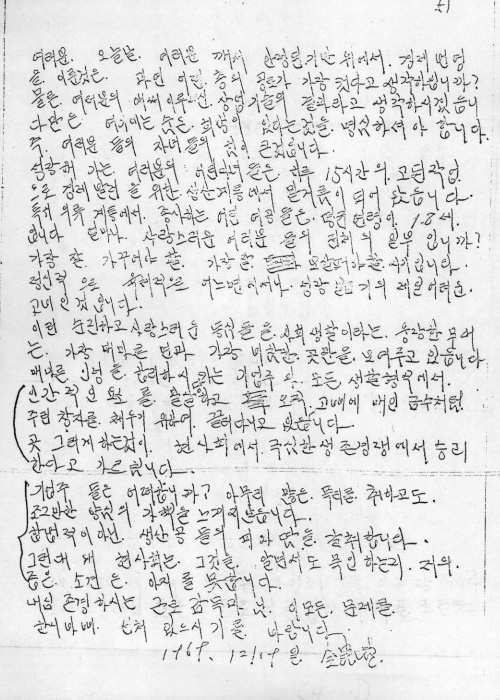 51
여러분. 오늘날. 여러분께서 안정된 기반 위에서. 경제 번영
을. 이룬것은. 과연 어떤. 층의 공로가 가장 컷다고 생각하십니까?
물론. 여러분의 애써 이루신. 상업기술의 결과라고 생각하시겠읍니
다만은 여기에는 숨은. 희생이 있다는것을. 명심하셔야 합니다.
즉. 여러분들의 자녀들의 힘이 큰것입니다.
성장해 가는. 여러분의 어린자녀들은. 하루 15시간의. 고된작업
으로 경제발전을 위한. 생산계통에서 밑거름이 되어 왔읍니다.
특히 의류 계통에서. 종사하는 어린 여공들은. 평균 연령이. 18세.
입니다 얼마나. 사랑스러운 여러분들의 전체의 일부 입니까?
가장 잘. 가꾸어야 할. 가장 잘. 보살펴야할. 시기입니다.
정신적으로 육체적으로 어느면에서나. 성장기의 제일 어려운.
고비인 것입니다.
이런 순진하고 사랑스러운 동심들을. 사회생활이라는. 웅장한 무대
는. 가장 메마른 면과 가장 비참한. 곳만을. 보여주고 있읍니다.
메마른 인정을. 합리화시키는 기업주와. 모든 생활형식에서.
인간적인 요소를 말살당하고 오직. 고삐에 매인 금수처럼
주린 창자를. 채우기 위하여. 끌려다니고 있읍니다.
곳 그렇게 하는것이. 현사회에서. 극심한 생존경쟁에서 승리
한다고 가르칩니다.
기업주들은 어떠합니까? 아무리 많은. 폭리를. 취하고도.
조그마한 양심의 가책을 느끼지않읍니다.
합법적이아닌. 생산공들의 피와 땀을. 갈취합니다.
그런대 왜 현사회는. 그것을. 알면서도 묵인하는지. 저의.
좁은 소견은. 알지를 못합니다.
내심 존경하시는 근로감독관님. 이모든. 문제를.
한시바삐. 선처 있으시기를. 바랍니다.
1969. 12.19일.